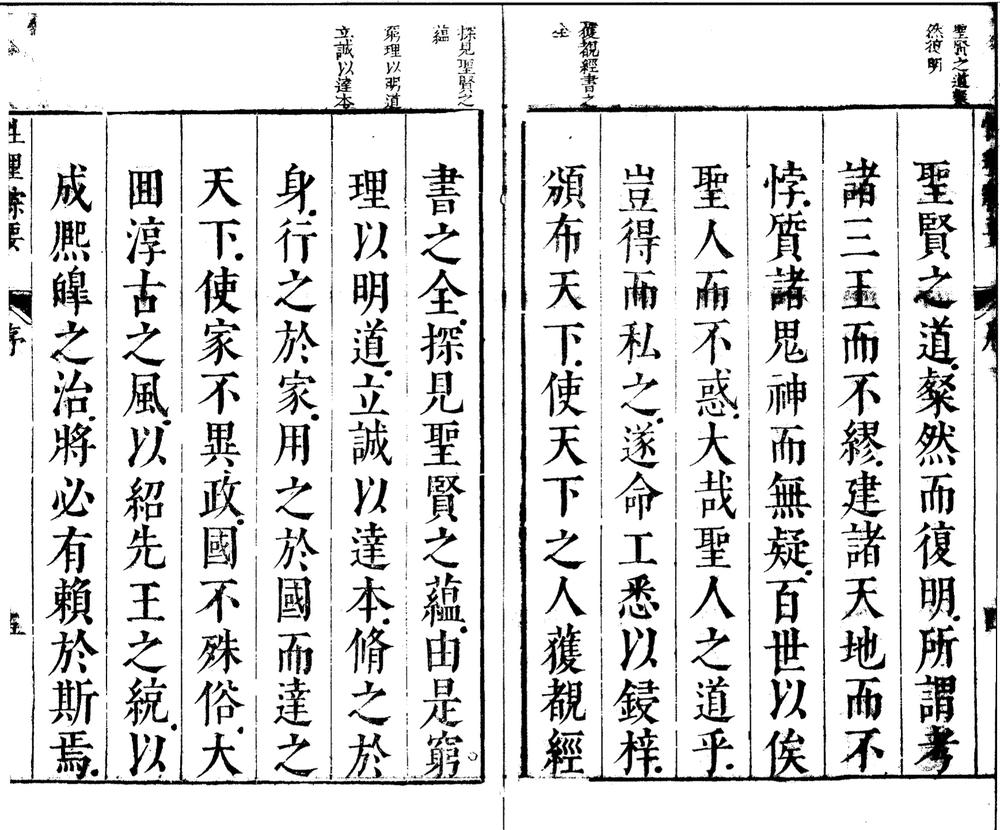 聖賢之道粲
然復明
獲覩經書之
全
聖賢之道粲然而復明所謂考
諸三王而不繆建諸天地而不
悖質諸鬼神而無疑百世以俟
聖人而不惑大哉聖人之道乎
豈得而私之遂命工悉以鋟梓
頒布天下使天下之人獲覩經
探見聖賢之
蘊
窮理以明道
立誠以達本
書之全探見聖賢之蘊由是窮
理以明道立誠以達本脩之於
身行之於家用之於國而達之
天下使家不異政國不殊俗大
回淳古之風以紹先王之統以
成熈皥之治將必有賴於斯焉
性理
要
序